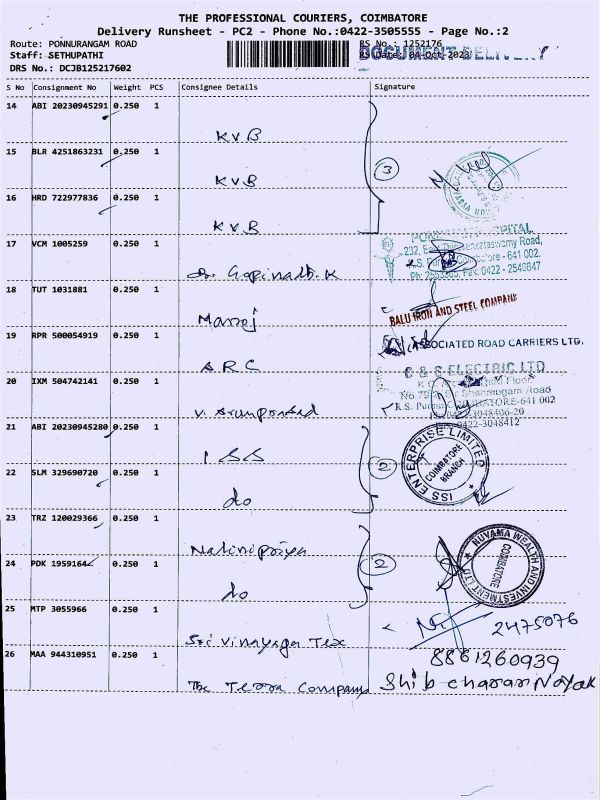 THE PROFESSIONAL COURIERS, COIMBATORE
Delivery Runsheet - PC2 - Phone No.:0422-3505555 - Page No.:2
Route: PONNURANGAM ROAD
RS No.: 1252176
Staff: SETHUPATHI
RS Date: 04-Oct-2023
DOCUMENT DELIVERY
DRS No.: DCJB125217602
S No Consignment No Weight PCS Consignee Details Signature
14 ABI 20230945291 0.250 1
KVB
15 BLR 4251863231 0.250 1
3
KVB
16 HRD 722977836 0.250 1
KVB
17 VCM 1005259 0.250 1
HOSPITAL
232, swamy Road,
641 002.
Ph: Fax: 0422 - 2546647
Dr. Gopinath. K
18 TUT 1031881 0.250 1
BALU IRON AND STEEL COMPANY
Manoj
19 RPR 500054919 0.250 1
ASSOCIATED ROAD CARRIERS LTD.
A.R.C
20 IXM 504742141 0.250 1
C & S ELECTRIC LTD
Floor,
No.75 Shanmugam Road
R.S. COIMBATORE-641 002
3048406-20
0422-3048412
V. Arunprasad
21 ABI 20230945280 0.250 1
ISS
ISS ENTERPRISE LIMITED
COIMBATORE
BRANCH
2
22 SLM 329690720 0.250 1
do
23 TRZ 120029366 0.250 1
Nalinipriya
NUVAMA WEALTH AND INVESTMENT LTD
COIMBATORE
2
24 PDK 1959164 0.250 1
do
25 MTP 3055966 0.250 1
2475076
Sri Vinayaga Tex
26 MAA 944310951 0.250 1
8861260939
The Terra Company
Shib charan Nayak